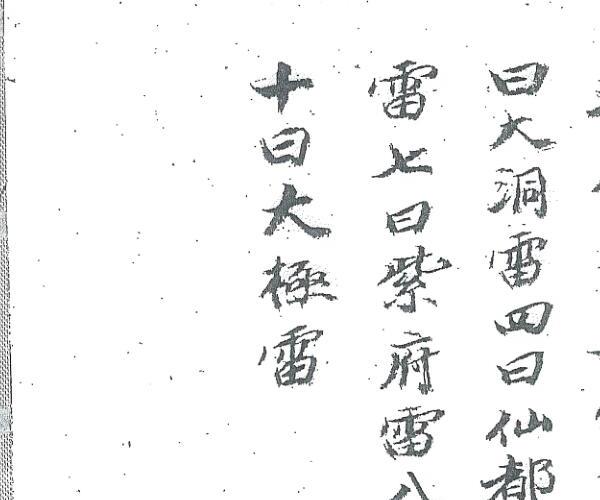 曰大洞雷四曰仙都
雷七曰紫府雷八
十曰大極雷